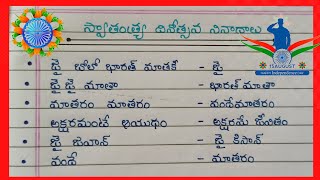 స్వాతంత్ర్య దినోత్సవ నినాదాలు
జై బోలో భారత్ మాతకీ - జై
జై జై మాతా - భారత్ మాతా
మాతరం మాతరం - వందేమాతరం
అక్షరమంటే ఆయుధం - అక్షరమే జీవితం
జై జవాన్ - జై కిసాన్
వందే - మాతరం
15AUGUST